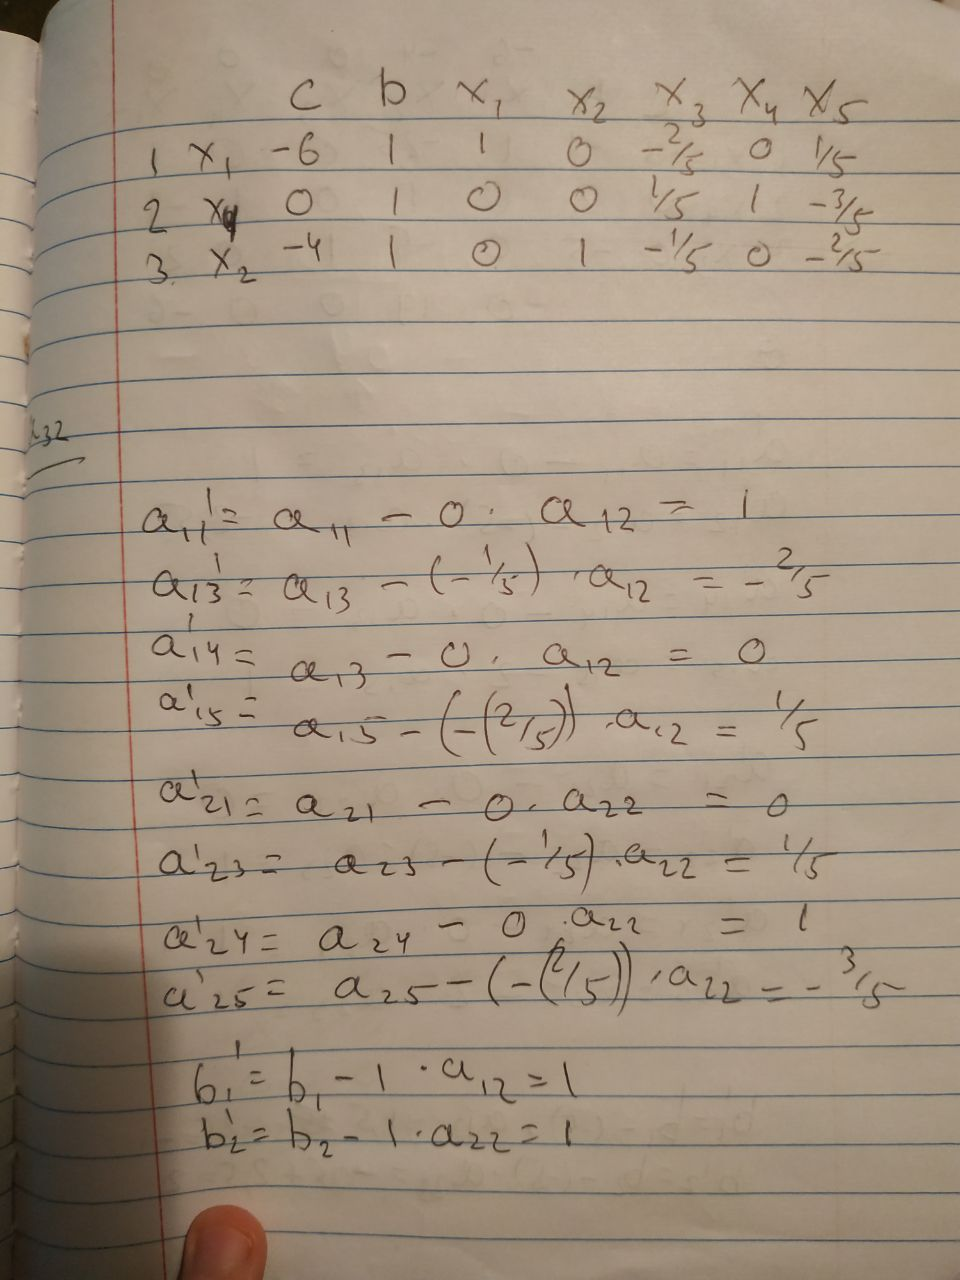 C b x₁ x₂ x₃ x₄ x₅
1 x₁ -6 1 1 0 -2/5 0 1/5
2 x₄ 0 1 0 0 1/5 1 -3/5
3. x₂ -4 1 0 1 -1/5 0 -2/5
a₁₁' = a₁₁ - 0 · a₁₂ = 1
a₁₃' = a₁₃ - (-1/5) · a₁₂ = -2/5
a'₁₄ = a₁₃ - 0 · a₁₂ = 0
a'₁₅ = a₁₅ - (-(2/5)) · a₁₂ = 1/5
a'₂₁ = a₂₁ - 0 · a₂₂ = 0
a'₂₃ = a₂₃ - (-1/5) · a₂₂ = 1/5
a'₂₄ = a₂₄ - 0 · a₂₂ = 1
a'₂₅ = a₂₅ - (-(2/5)) · a₂₂ = -3/5
b₁' = b₁ - 1 · a₁₂ = 1
b₂' = b₂ - 1 · a₂₂ = 1